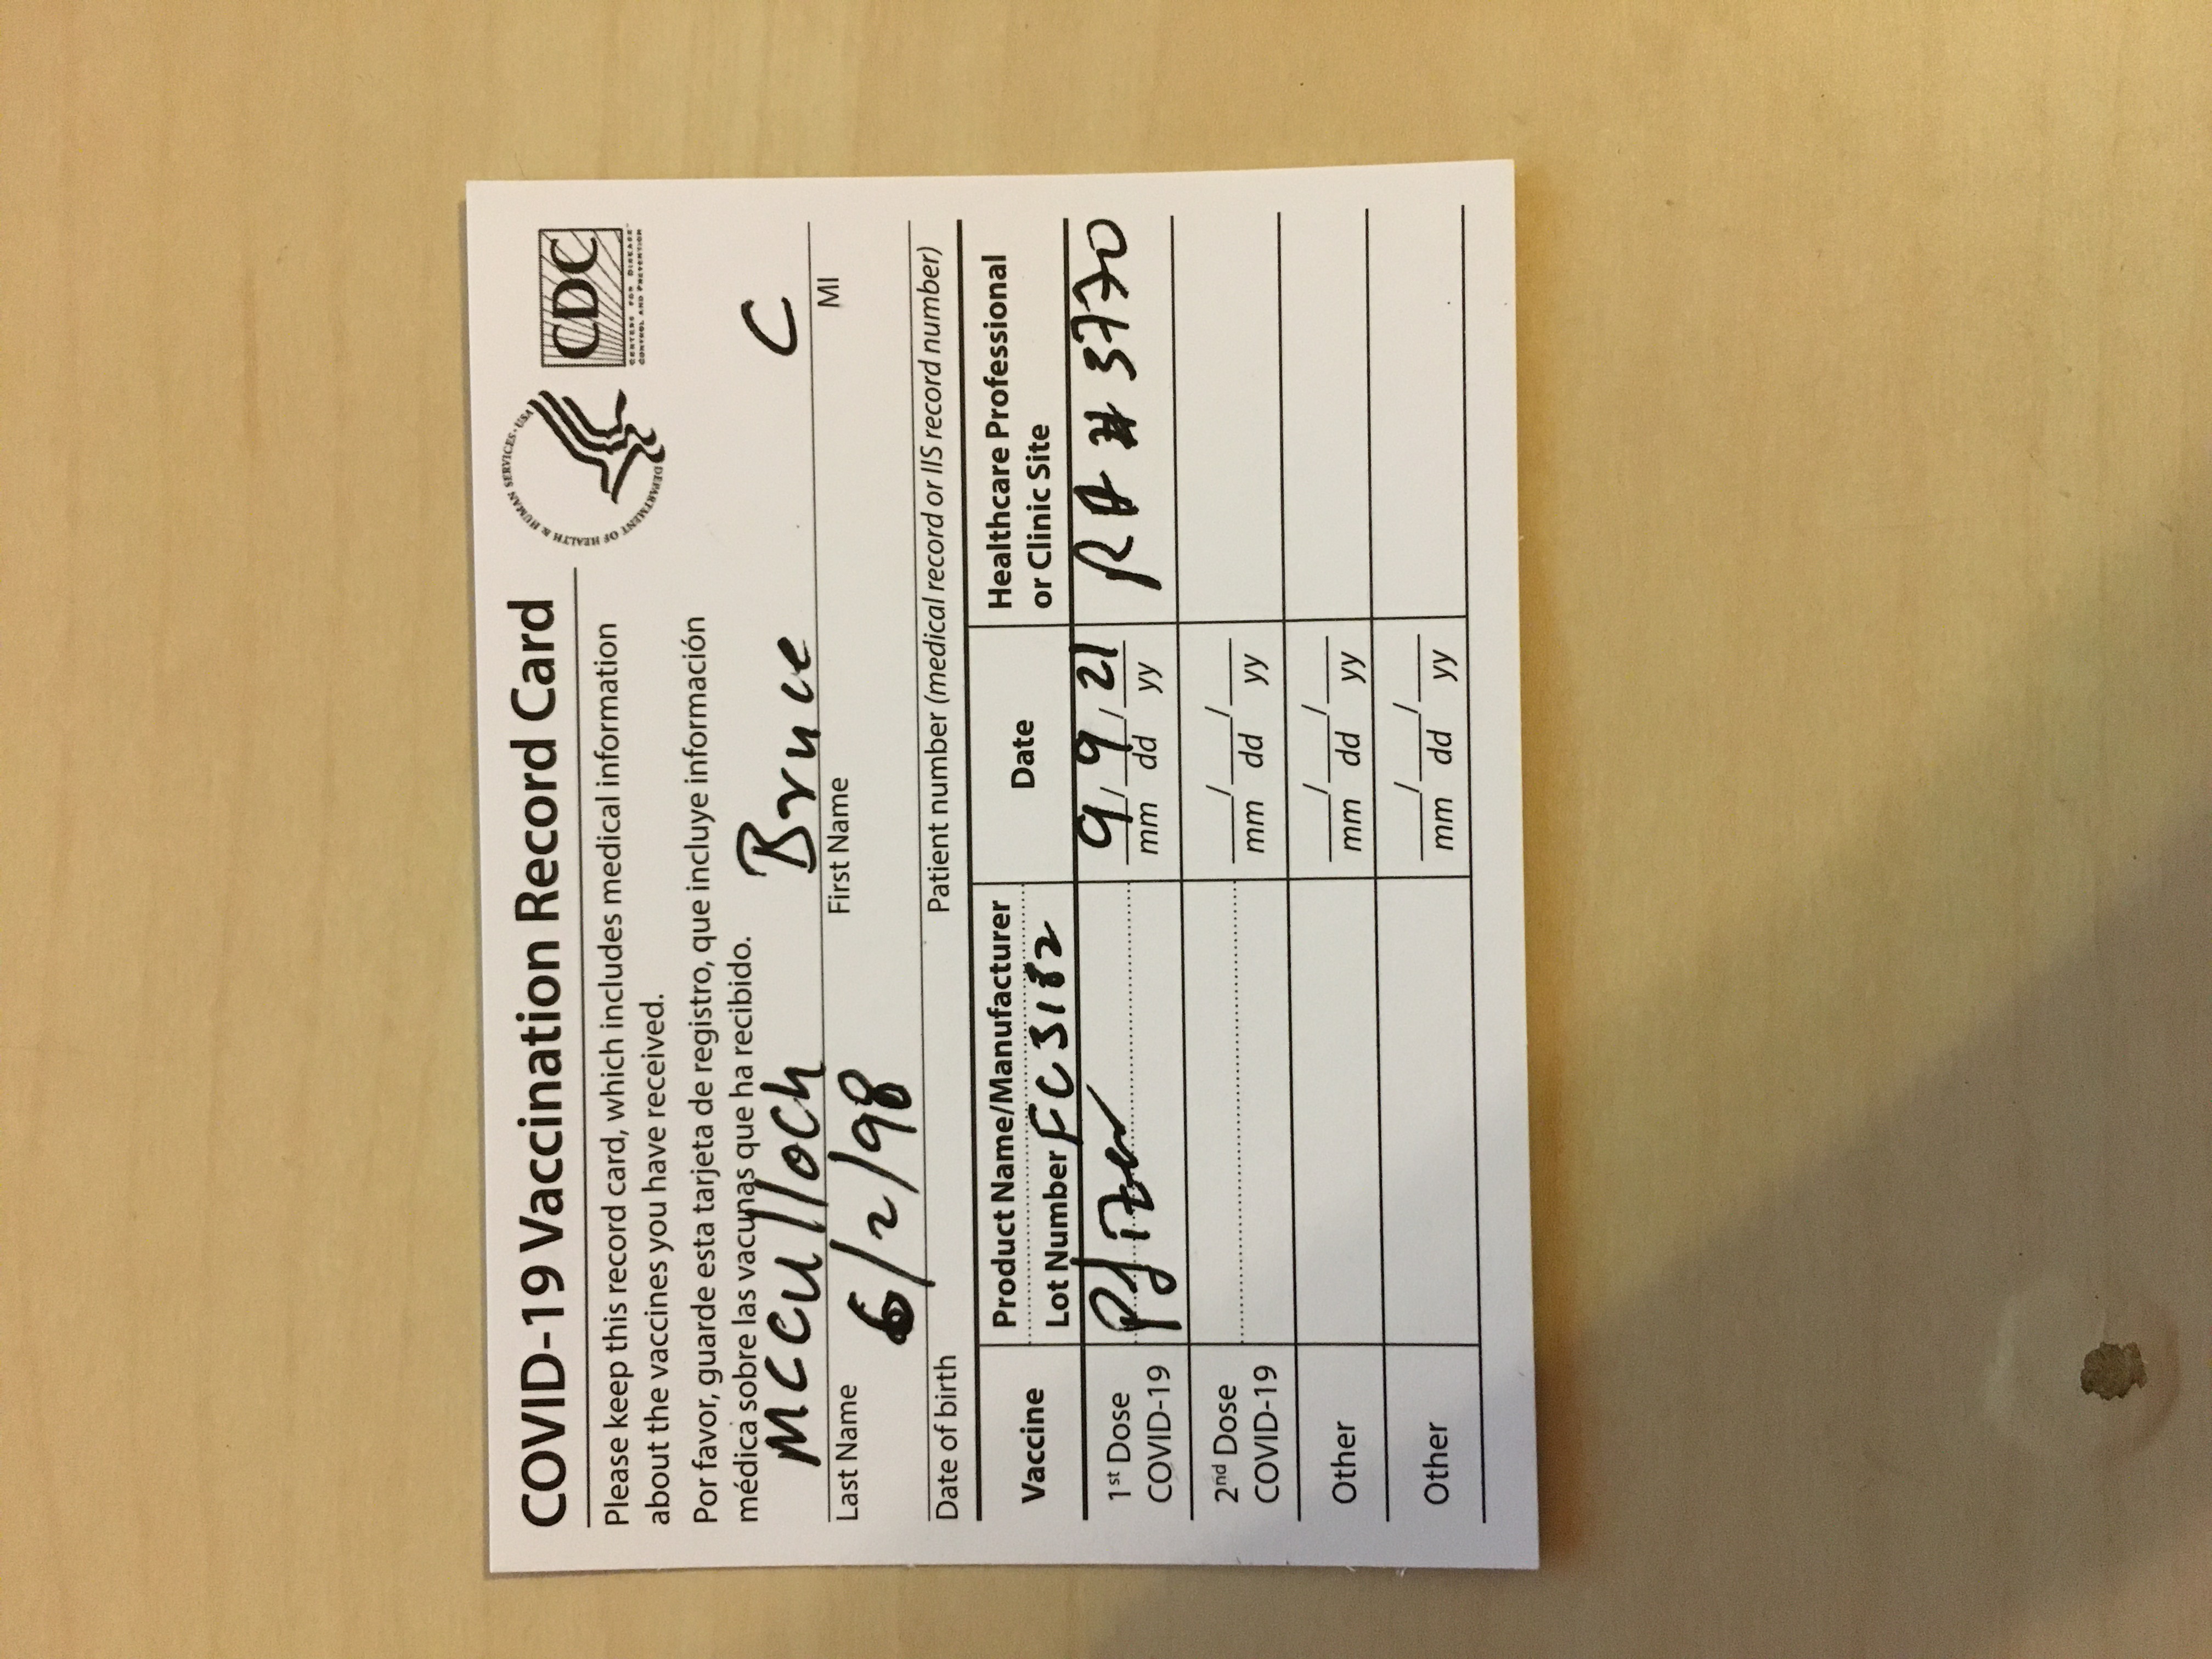 COVID-19 Vaccination Record Card
DEPARTMENT OF HEALTH & HUMAN SERVICES • USA
CDC
CENTERS FOR DISEASE™
CONTROL AND PREVENTION
Please keep this record card, which includes medical information
about the vaccines you have received.
Por favor, guarde esta tarjeta de registro, que incluye información
médica sobre las vacunas que ha recibido.
McCulloch Bruce C
Last Name First Name MI
6/2/98
Date of birth Patient number (medical record or IIS record number)
Vaccine
Product Name/Manufacturer
Lot Number FC3182
Date
Healthcare Professional
or Clinic Site
1st Dose
COVID-19
Pfizer
9/9/21
mm dd yy
RA # 3770
2nd Dose
COVID-19
___/___/___
mm dd yy
Other
___/___/___
mm dd yy
Other
___/___/___
mm dd yy